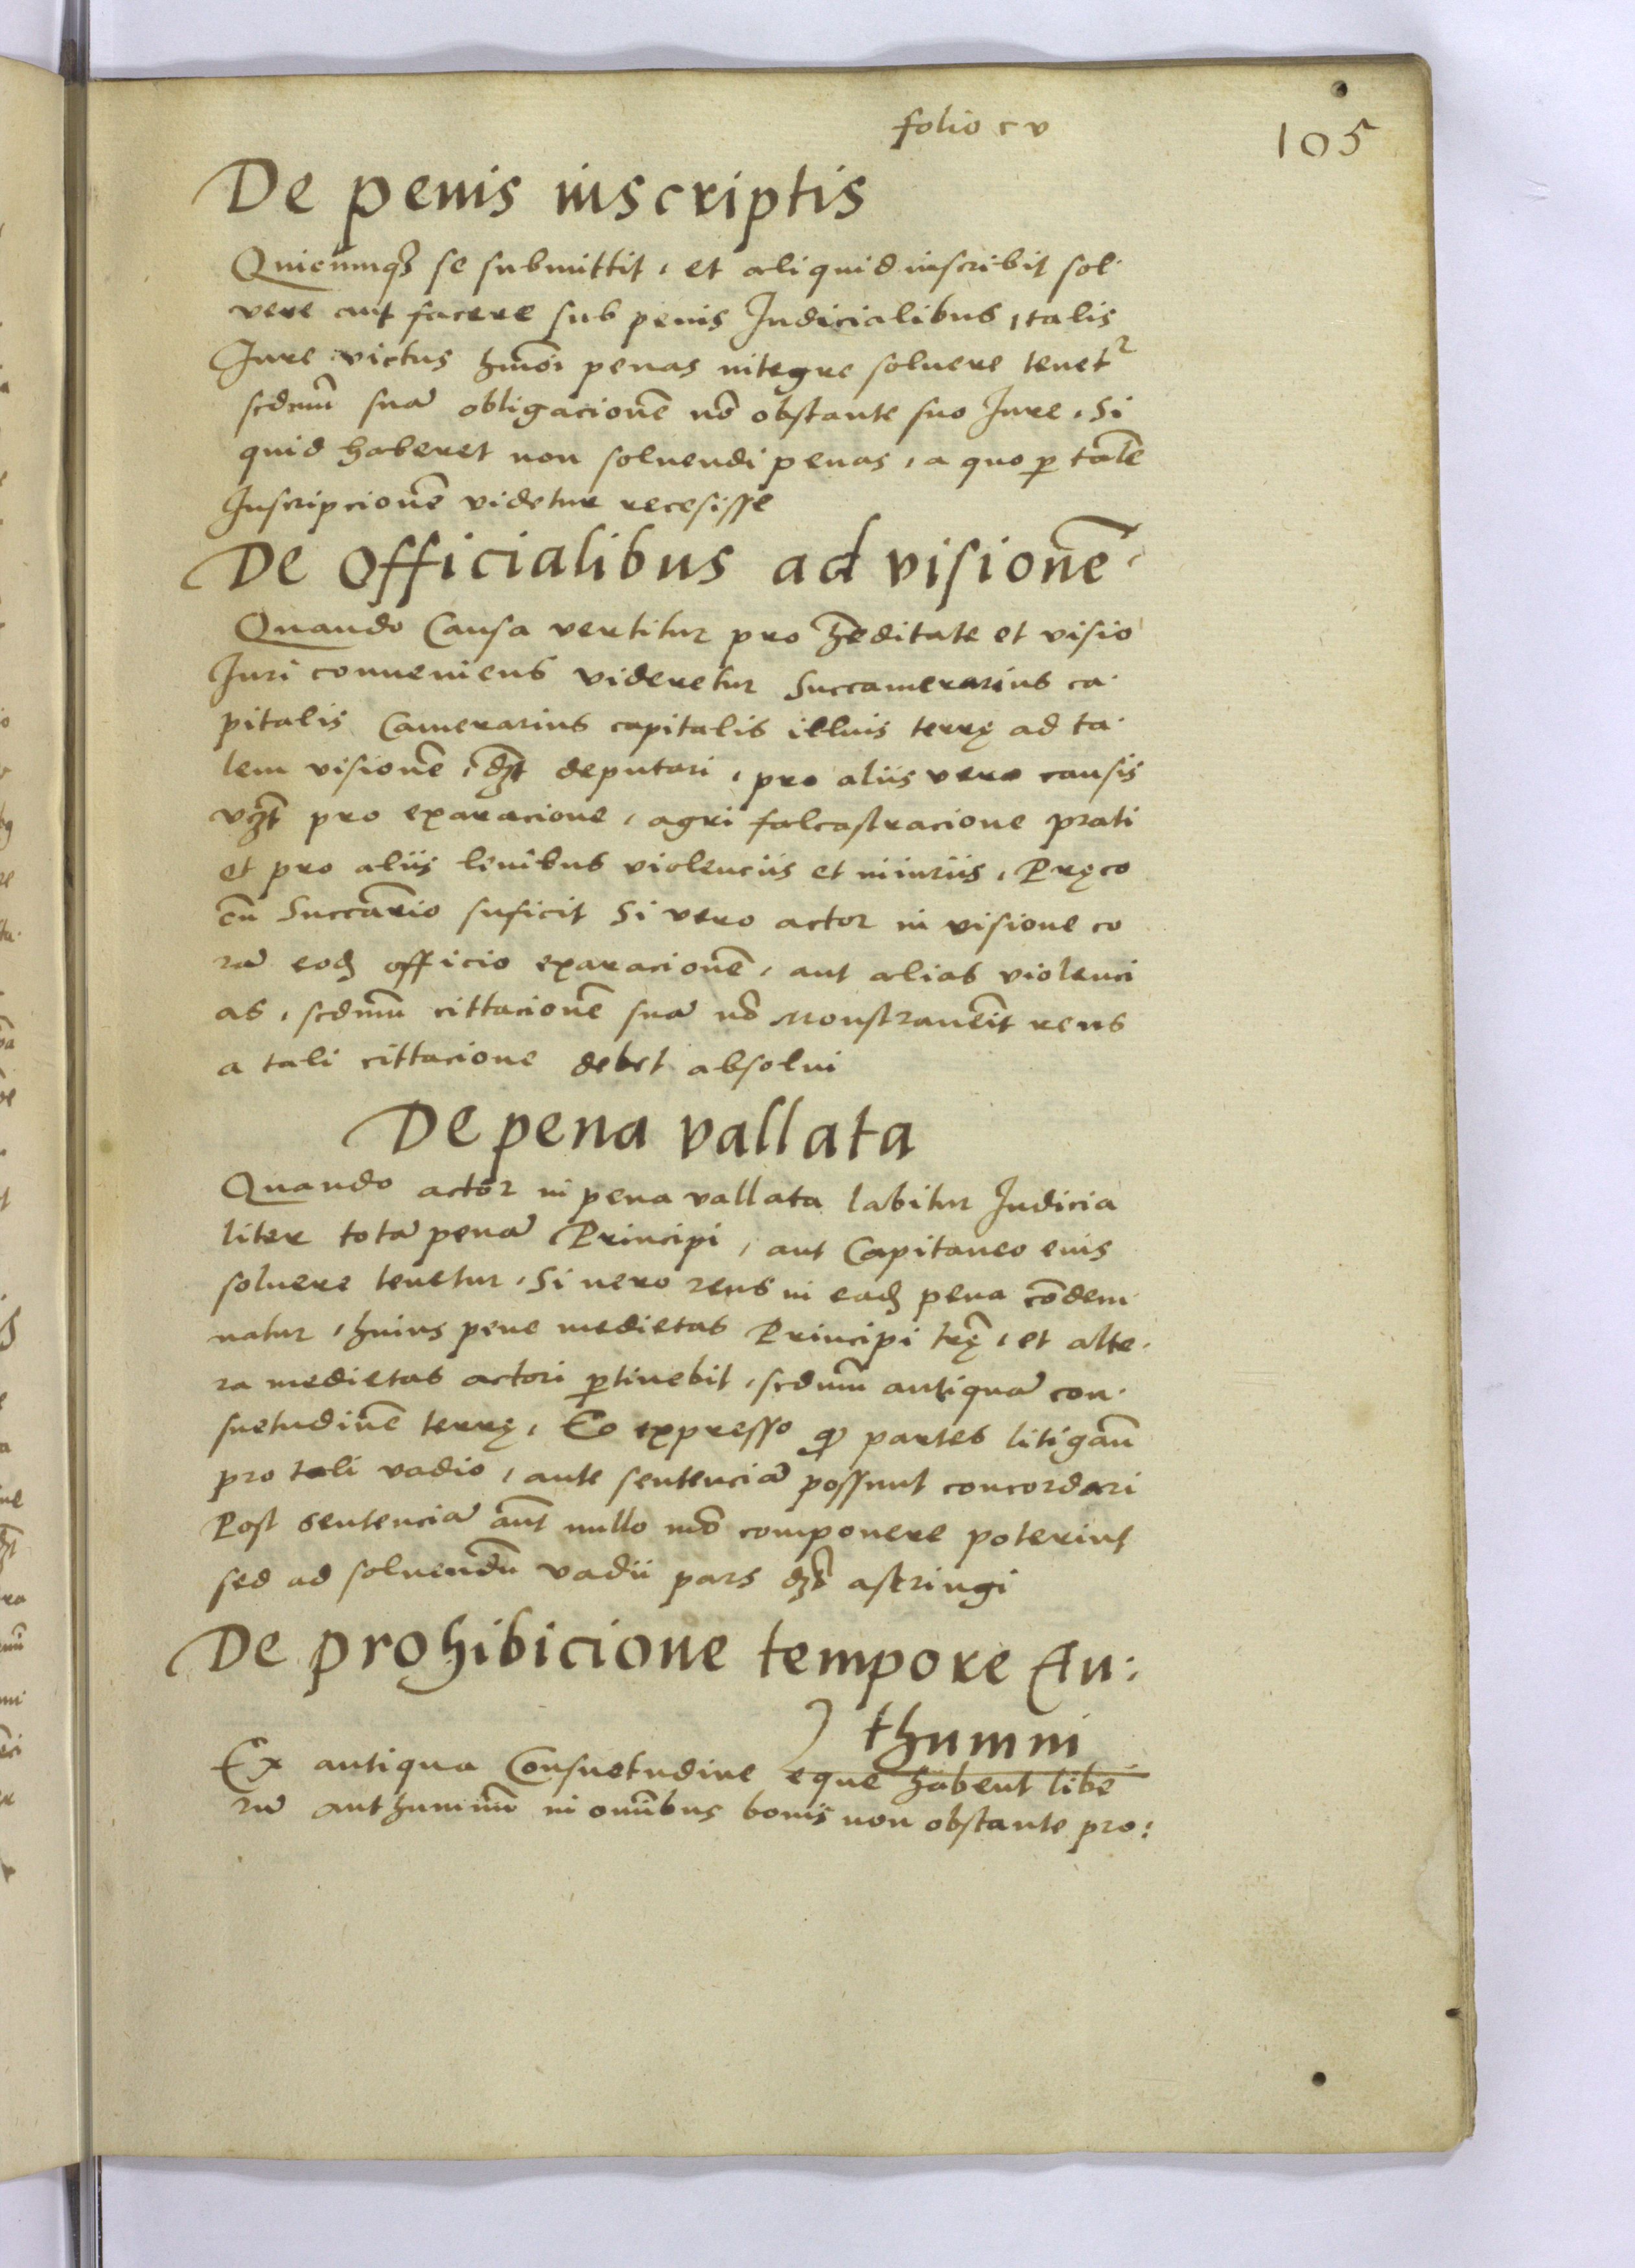 folio cv
105
De penis inscriptis
Quicunqꝫ se submittit, et aliquid inscribit sol·
vere aut facere sub penis Judicialibus, talis
Jure victus hmōi penas integre soluere tenet²
scdm̄ suā obligacionē nō obstante suo Jure, Si
quid haberet non soluendi penas, a quo ꝑ talē
Inscripcionē videtur recesisse
De Officialibus ad visionē
Quando Causa vertitur pro hēditate et visio
Juri conueniens videretur Succamerarius ca·
pitalis Camerarius capitalis illius terrę ad ta·
lem visionē, dꝫt deputari, pro aliis vero causis
vꝫt pro exaracione, agri falcastracione prati
et pro aliis leuibus violenciis et iniuriis, Pręco
cū Succārio suficit Si vero actor in visione co
rā eodꝫ officio exaracionē, aut alias violenci
as, scdm̄ cittacionē suā nō Monstrauēit reus
a tali cittacione debet absolui
De pena vallata
Quando actor in pena vallata labitur Judicia
liter totā penā Principi, aut Capitaneo eius
soluere tenetur, Si uero reus in eadꝫ pena cōdem·
natur, huius pene medietas Principi trę̄, et alte·
ra medietas actori ꝑtinebit, scdm̄ antiquā con·
suetudinē terrę, Eo expresso ꝙ partes litigan̄
pro tali vadio, ante sentenciā possunt concordari
Post sentenciā aūt nullo mō componere poterint
sed ad soluendū vadii pars dꝫt astringi
De prohibicione tempore Au:
thumni
Ex antiqua Consuetudine eque habent libe
rū authumnū in omībus bonis non obstante pro: